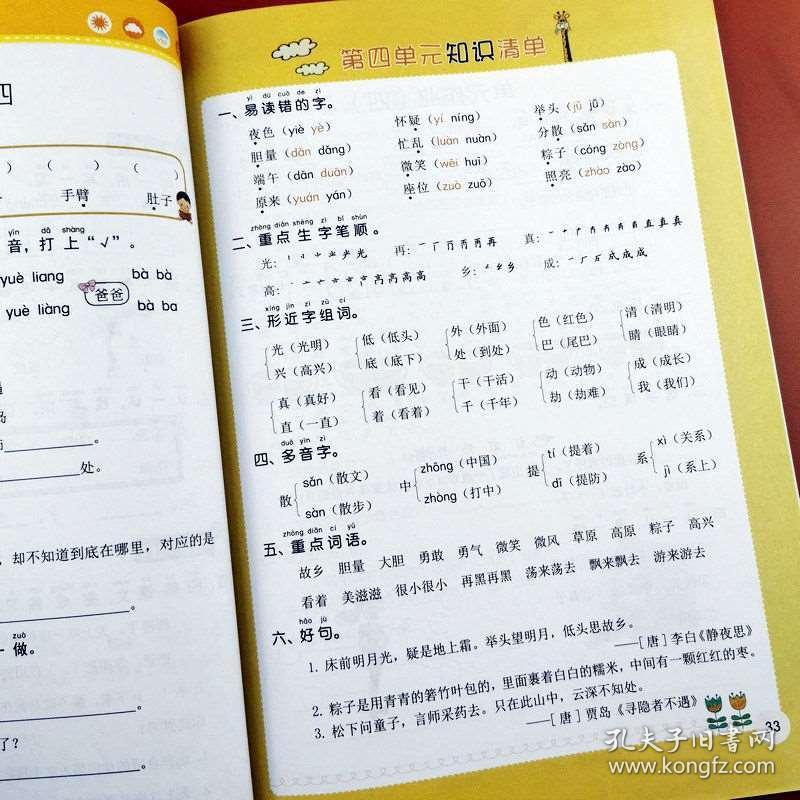 四
（ ） （ ） （ ）
手臂 肚子
yīn dǎ shàng
音，打上“√”。
yuè liang bà bà
yuè liàng 爸爸 bà ba
____。
____处。
，却不知道到底在哪里，对应的是
____。
zuò
一做。
____。
了？
____。
第四单元知识清单
yì dú cuò de zì
一、易读错的字。
夜色（yiè yè） 怀疑（yí níng） 举头（jǔ jū）
胆量（dǎn dǎng） 忙乱（luàn nuàn） 分散（sǎn sàn）
端午（dān duān） 微笑（wēi huī） 粽子（cóng zòng）
原来（yuán yán） 座位（zuò zuō） 照亮（zhào zào）
zhòng diǎn shēng zì bǐ shùn
二、重点生字笔顺。
光： 再： 真：
高： 乡： 成：
xíng jìn zì zǔ cí
三、形近字组词。
光（光明） 低（低头） 外（外面） 色（红色） 清（清明）
兴（高兴） 底（底下） 处（到处） 巴（尾巴） 睛（眼睛）
真（真好） 看（看见） 干（干活） 动（动物） 成（成长）
直（一直） 着（看着） 千（千年） 劫（劫难） 我（我们）
duō yīn zì
四、多音字。
散 sǎn（散文） sàn（散步） 中 zhōng（中国） zhòng（打中） 提 tí（提着） dī（提防） 系 xì（关系） jì（系上）
zhòng diǎn cí yǔ
五、重点词语。
故乡 胆量 大胆 勇敢 勇气 微笑 微风 草原 高原 粽子 高兴
看着 美滋滋 很小很小 再黑再黑 荡来荡去 飘来飘去 游来游去
hǎo jù
六、好句。
1. 床前明月光，疑是地上霜。举头望明月，低头思故乡。
——［唐］李白《静夜思》
2. 粽子是用青青的箬竹叶包的，里面裹着白白的糯米，中间有一颗红红的枣。
3. 松下问童子，言师采药去。只在此山中，云深不知处。
——［唐］贾岛《寻隐者不遇》
33
孔夫子旧书网
www.kongfz.com